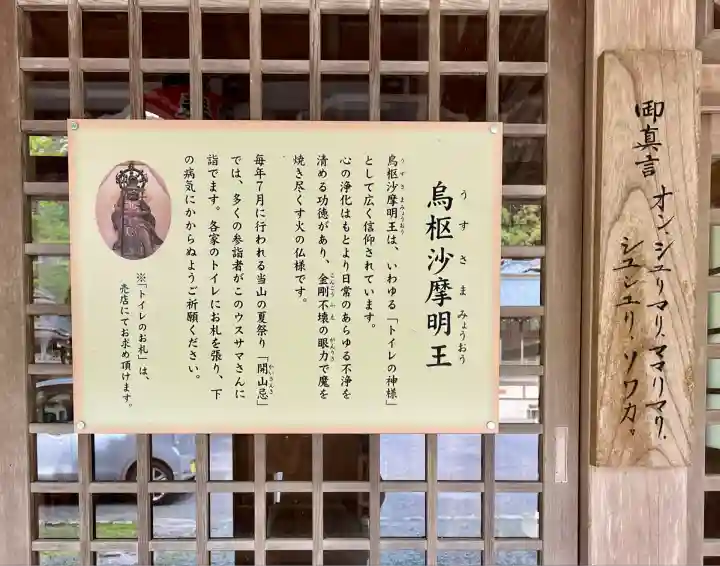 烏枢沙摩明王
うすさまみょうおう
烏枢沙摩明王は、いわゆる「トイレの神様」
として広く信仰されています。
心の浄化はもとより日常のあらゆる不浄を
清める功徳があり、金剛不壊の眼力で魔を
焼き尽くす火の仏様です。
毎年7月に行われる当山の夏祭り「開山忌」
では、多くの参詣者がこのウスサマさんに
詣でます。各家のトイレにお札を張り、下
の病気にかからぬようご祈願ください。
※「トイレのお札」は、
売店にてお求め頂けます。
御真言 オン・シュリマリ・ママリマリ・
シュシュリ・ソワカ。